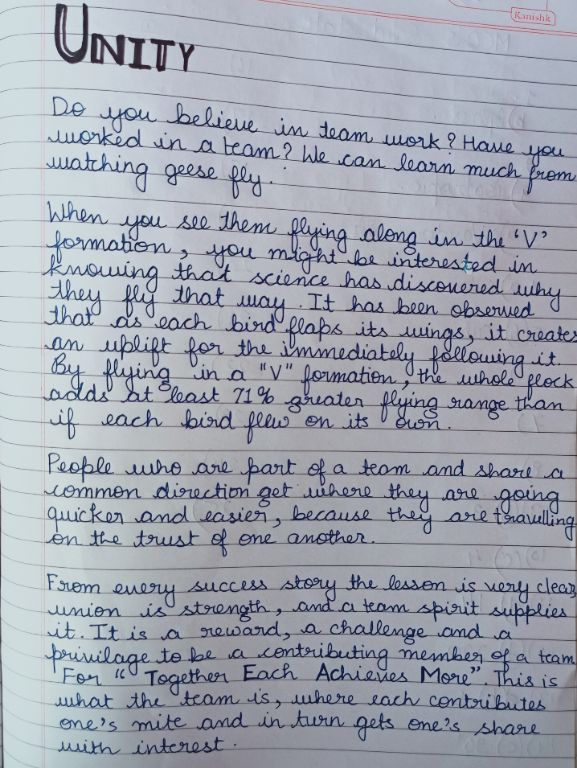 Kanishk
UNITY
Do you believe in team work? Have you
worked in a team? We can learn much from
watching geese fly.
When you see them flying along in the 'V'
formation, you might be interested in
knowing that science has discovered why
they fly that way. It has been observed
that as each bird flaps its wings, it creates
an uplift for the immediately following it.
By flying in a "V" formation, the whole flock
adds at least 71% greater flying range than
if each bird flew on its own.
People who are part of a team and share a
common direction get where they are going
quicker and easier, because they are travelling
on the trust of one another.
From every success story the lesson is very clear,
union is strength, and a team spirit supplies
it. It is a reward, a challenge and a
privilage to be a contributing member of a team
For "Together Each Achieves More". This is
what the team is, where each contributes
one's mite and in turn gets one's share
with interest.